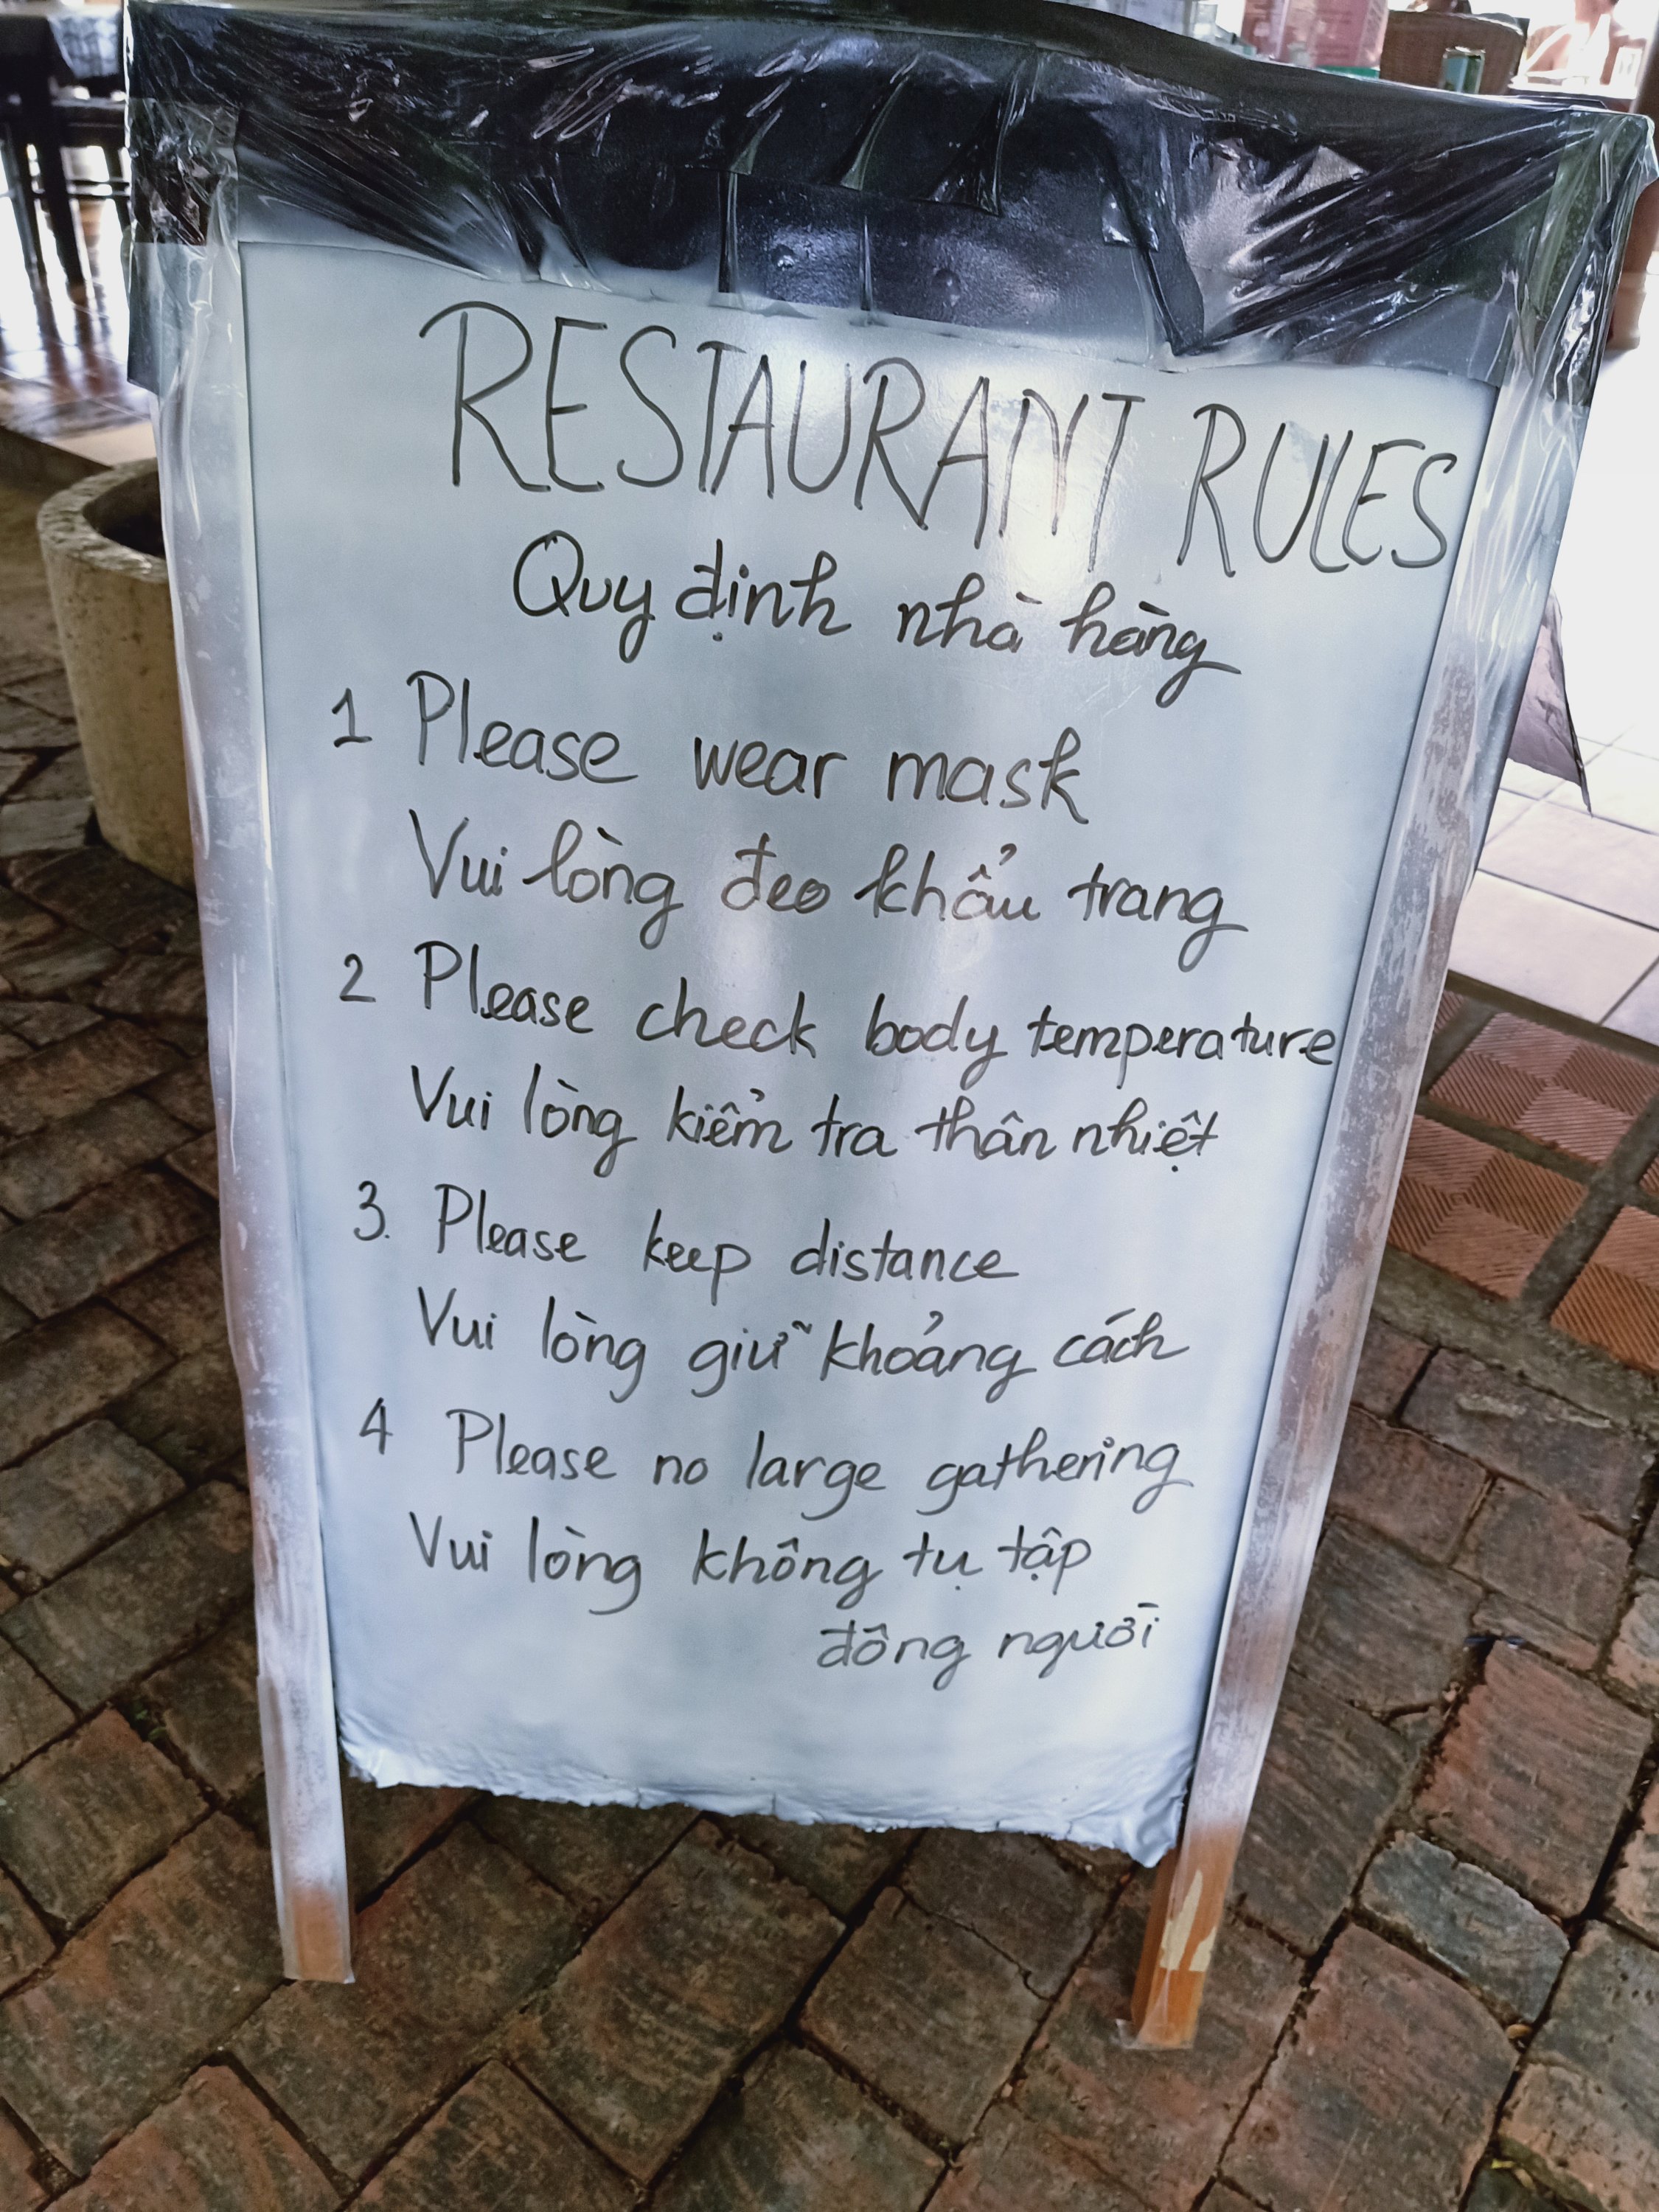 RESTAURANT RULES
Quy định nhà hàng
1 Please wear mask
Vui lòng đeo khẩu trang
2 Please check body temperature
Vui lòng kiểm tra thân nhiệt
3. Please keep distance
Vui lòng giữ khoảng cách
4 Please no large gathering
Vui lòng không tụ tập
đông người